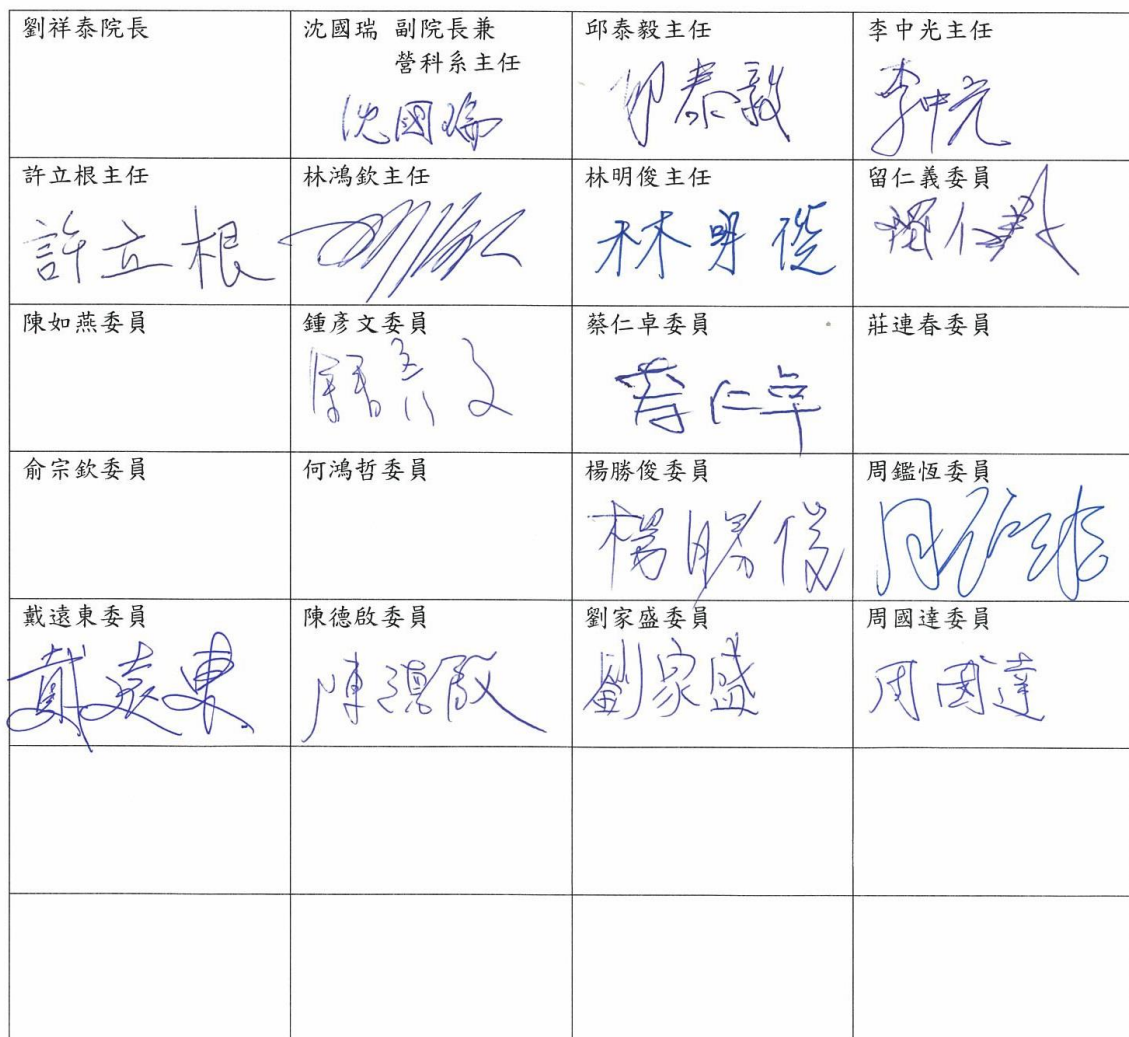 劉祥泰院長
沈國瑞 副院長兼
營科系主任
沈國瑞
邱泰毅主任
邱泰毅
李中光主任
李中光
許立根主任
許立根
林鴻欽主任
林明俊主任
林明俊
留仁義委員
留仁義
陳如燕委員
鍾彥文委員
鍾彥文
蔡仁卓委員
蔡仁卓
莊連春委員
俞宗欽委員
何鴻哲委員
楊勝俊委員
楊勝俊
周鑑恆委員
戴遠東委員
戴遠東
陳德啟委員
陳德啟
劉家盛委員
劉家盛
周國達委員
周國達